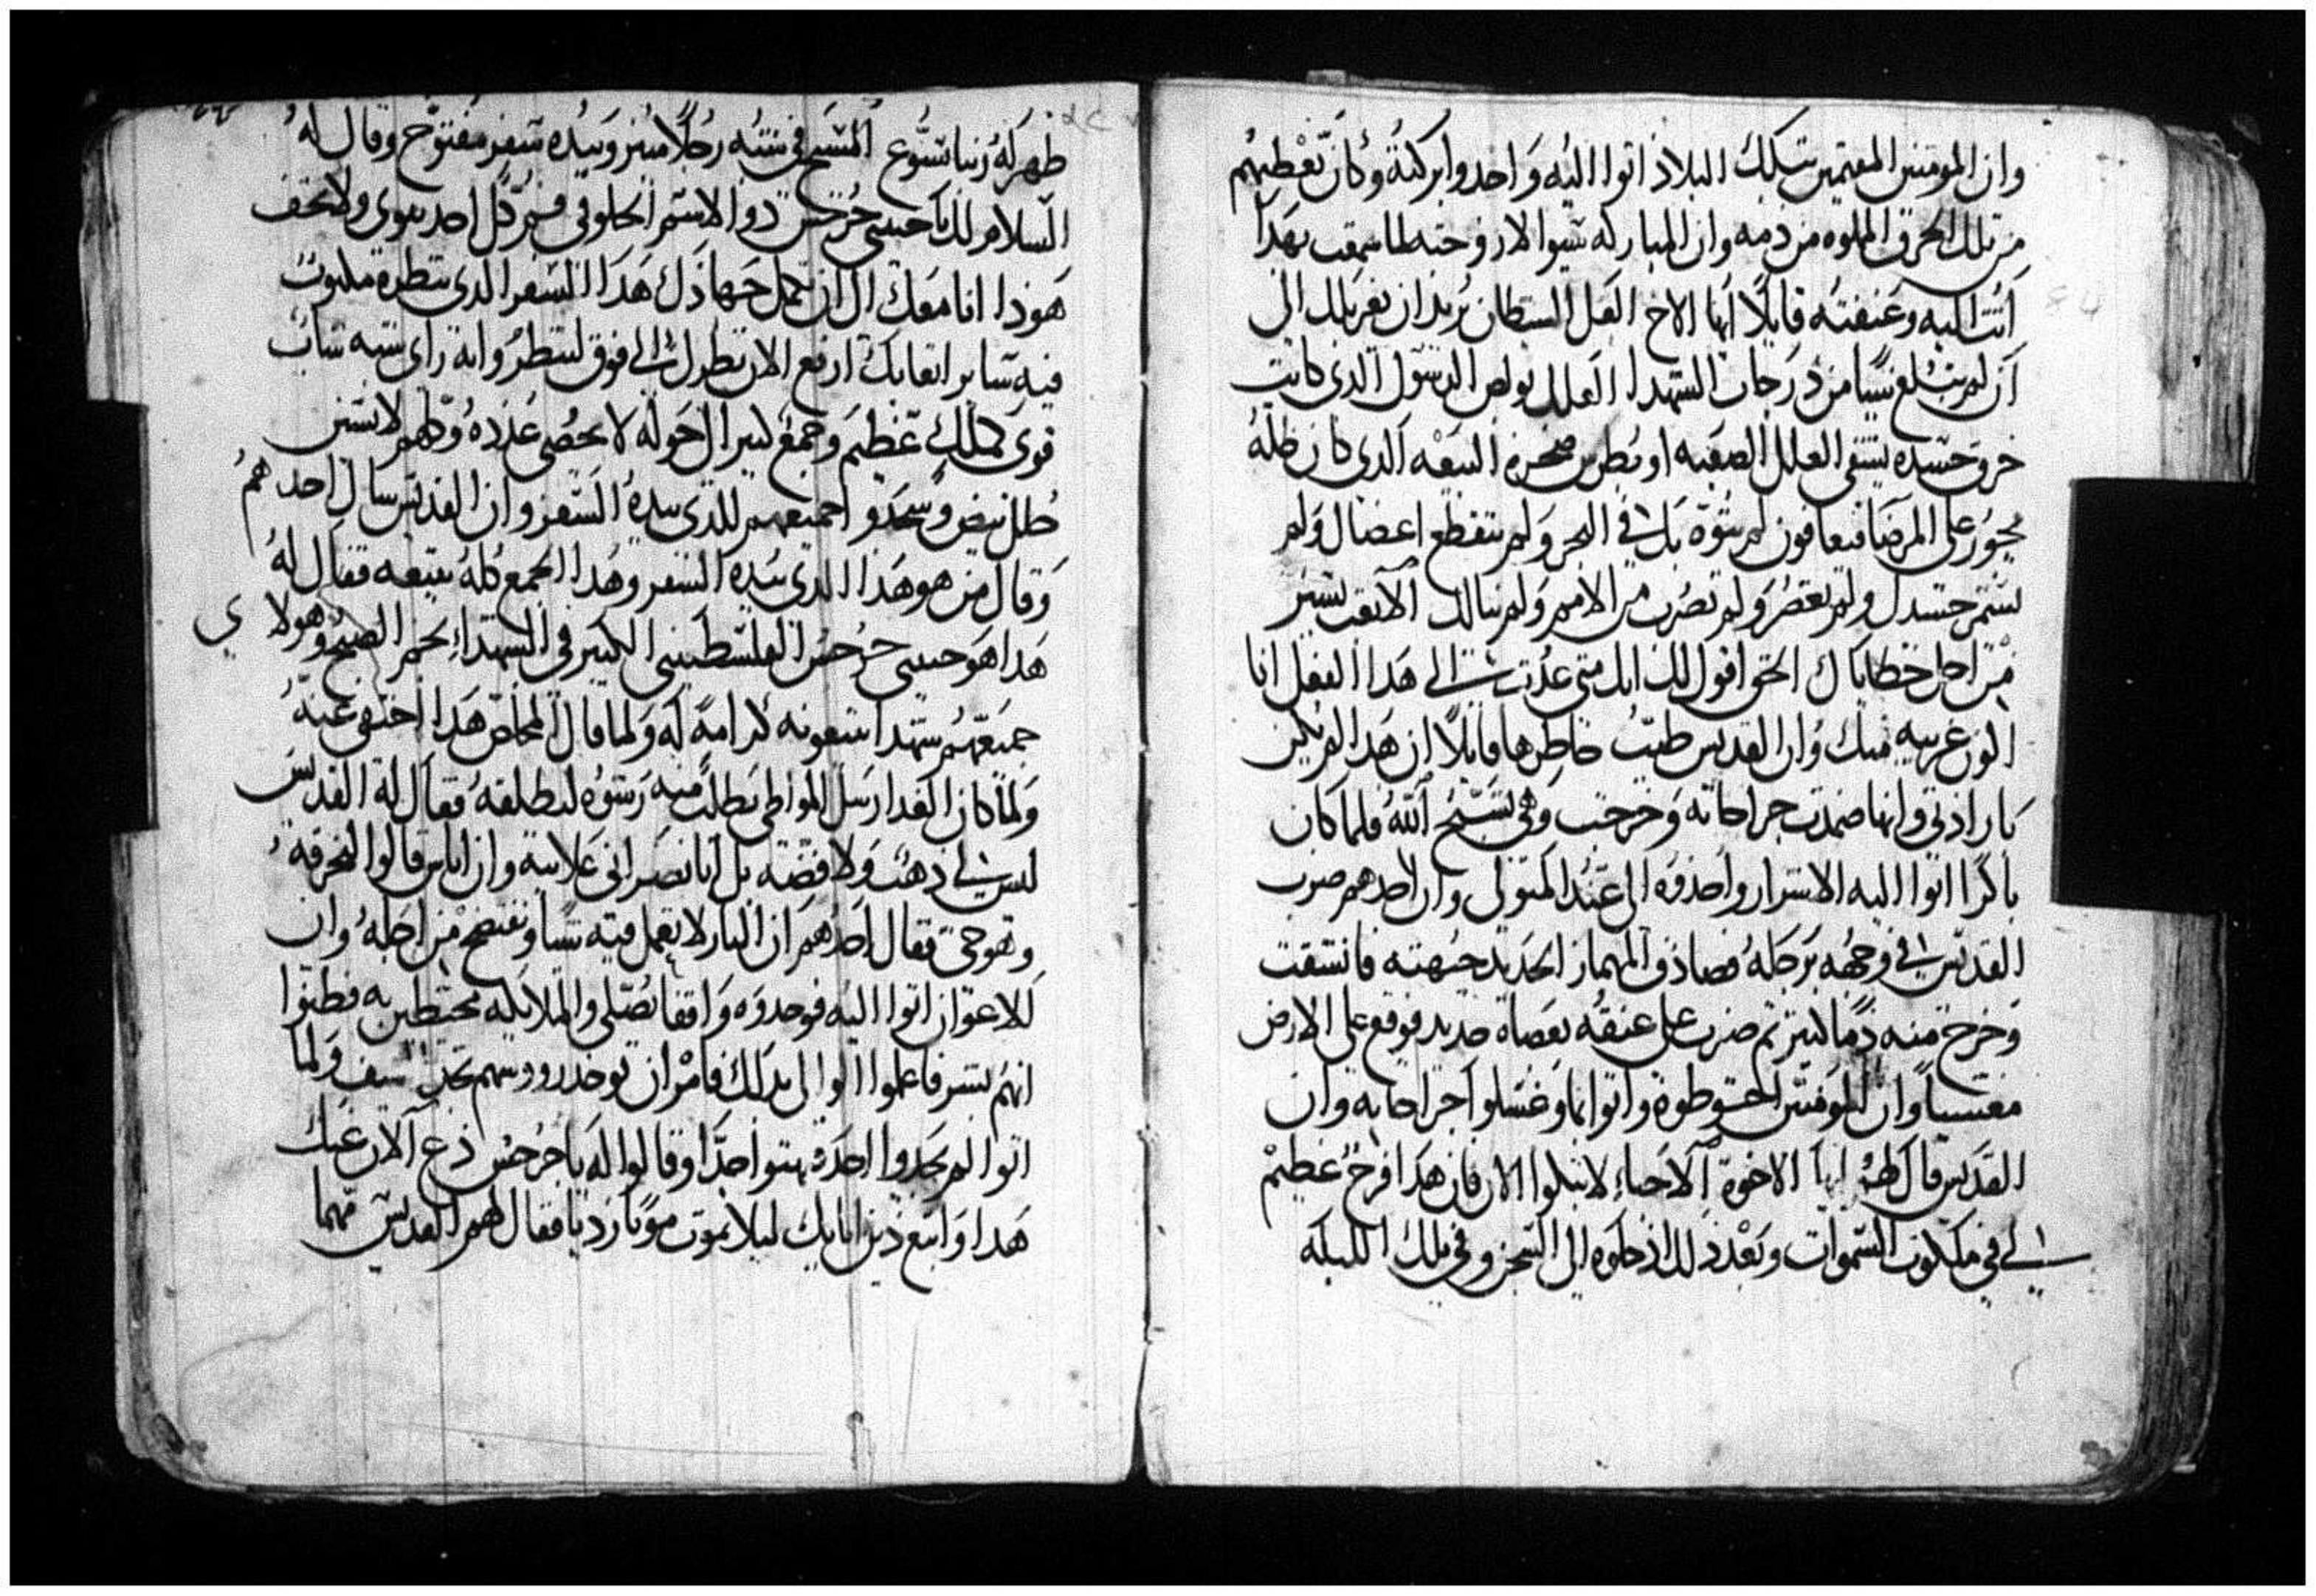 وان المومنين المقيمين بتلك البلاد اتوا اليه واخدوا بركته وكان يعطيهم
من تلك الخرق المملوه من دمه وان المباركه سيوا الارو حته لما سمعت بهدا
اتت اليه وعنفته قايلا ايها الاخ لعل الشيطان يريد ان يغربلك الى
ان لم تبلغ شيا من درجات الشهدا العلك بولص الرسول الدي كانت
خروق جسده تشفي العلل الصعبه او بطرس صخرة البيعه الدي كان ظله
يجوز على المرضا فيعافون لم ترة بك في البحر ولم تتقطع اعضاك ولم
يشتم جسدك ولم تعصر ولم تضرب من الامم ولم ينالك الا تعب يسير
من اجل خطاياك الحق اقول لك انك متى عدت الى هدا الفعل انا
اكون غريبه منك وان القديس طيب خاطرها قايلا ان هدا لم يكن
بارادتي وانها ضمدت جراحاته وخرجت وهي تسبح الله فلما كان
باكرا اتوا اليه الاشرار واخدوه الى عند المتولي وان احدهم ضرب
القديس في وجهه برجله فصادف المهماز الحديد جبهته فانشقت
وخرج منه دما كثير تم ضرب على عنقه بعصاة حديد فوقع على الارض
مغشيا وان المومنين احتوطوه واتوا بما وغسلوا جراحاته وان
القديس قال لهم ايها الاخوة الاحباء لا تبكوا الان فان هدا فرح عظيم
لي في ملكوت السموات وبعد دلك ادخلوه الى السجن وفي تلك الليله
ظهر له ربنا يسوع المسيح في شبه رجلا منير وبيده سفر مفتوح وقال له
السلام لك يا حبيبي جرجس دو الاسم الحلو في فم كل احد يقوى ولا تخف
هودا انا معك الى ان تكمل جهادك هدا السفر الدي تنظره مكتوب
فيه ساير اتعابك ارفع الان نظرك الى فوق لتنظر وانه راى شبه شاب
قوى كملك عظيم وجمع كثير ال حوله لا يحصى عدده وكلهم لابسين
حلل بيض وسجدو اجميعهم للدي بيده السفر وان القديس سال احدهم
وقال من هو هدا الدي بيده السفر وهدا الجمع كله يتبعه فقال له
هدا هو حبيبي جرجس الفلسطيني الكبير في الشهداء نجم الصبح وهولاي
جميعهم شهدا يتبعونه كرامة له ولما قال المخلص هدا اختفى عنه
ولما كان الغد ارسل الوالي يطلب منه رشوه ليطلقه فقال له القديس
ليس لي دهب ولا فضه بل انا نصراني علانيه وان اناس قالوا لنحرقه
وهو حي فقال احدهم ان النار لا تعمل فيه شيا ونفتضح من اجله وان
الاعوان اتوا اليه فوجدوه واقفا يصلي والملايكه محيطين به فظنوا
انهم بشر فاعلموا الوالى بدلك فامر ان توخد رووسهم بحد السيف ولما
اتوا لم يجدوا احد فبهتوا جدا وقالوا له يا جرجس دع الان عنك
هدا واتبع دين ابايك ليلا تموت موتا رديا فقال لهم القديس مهما